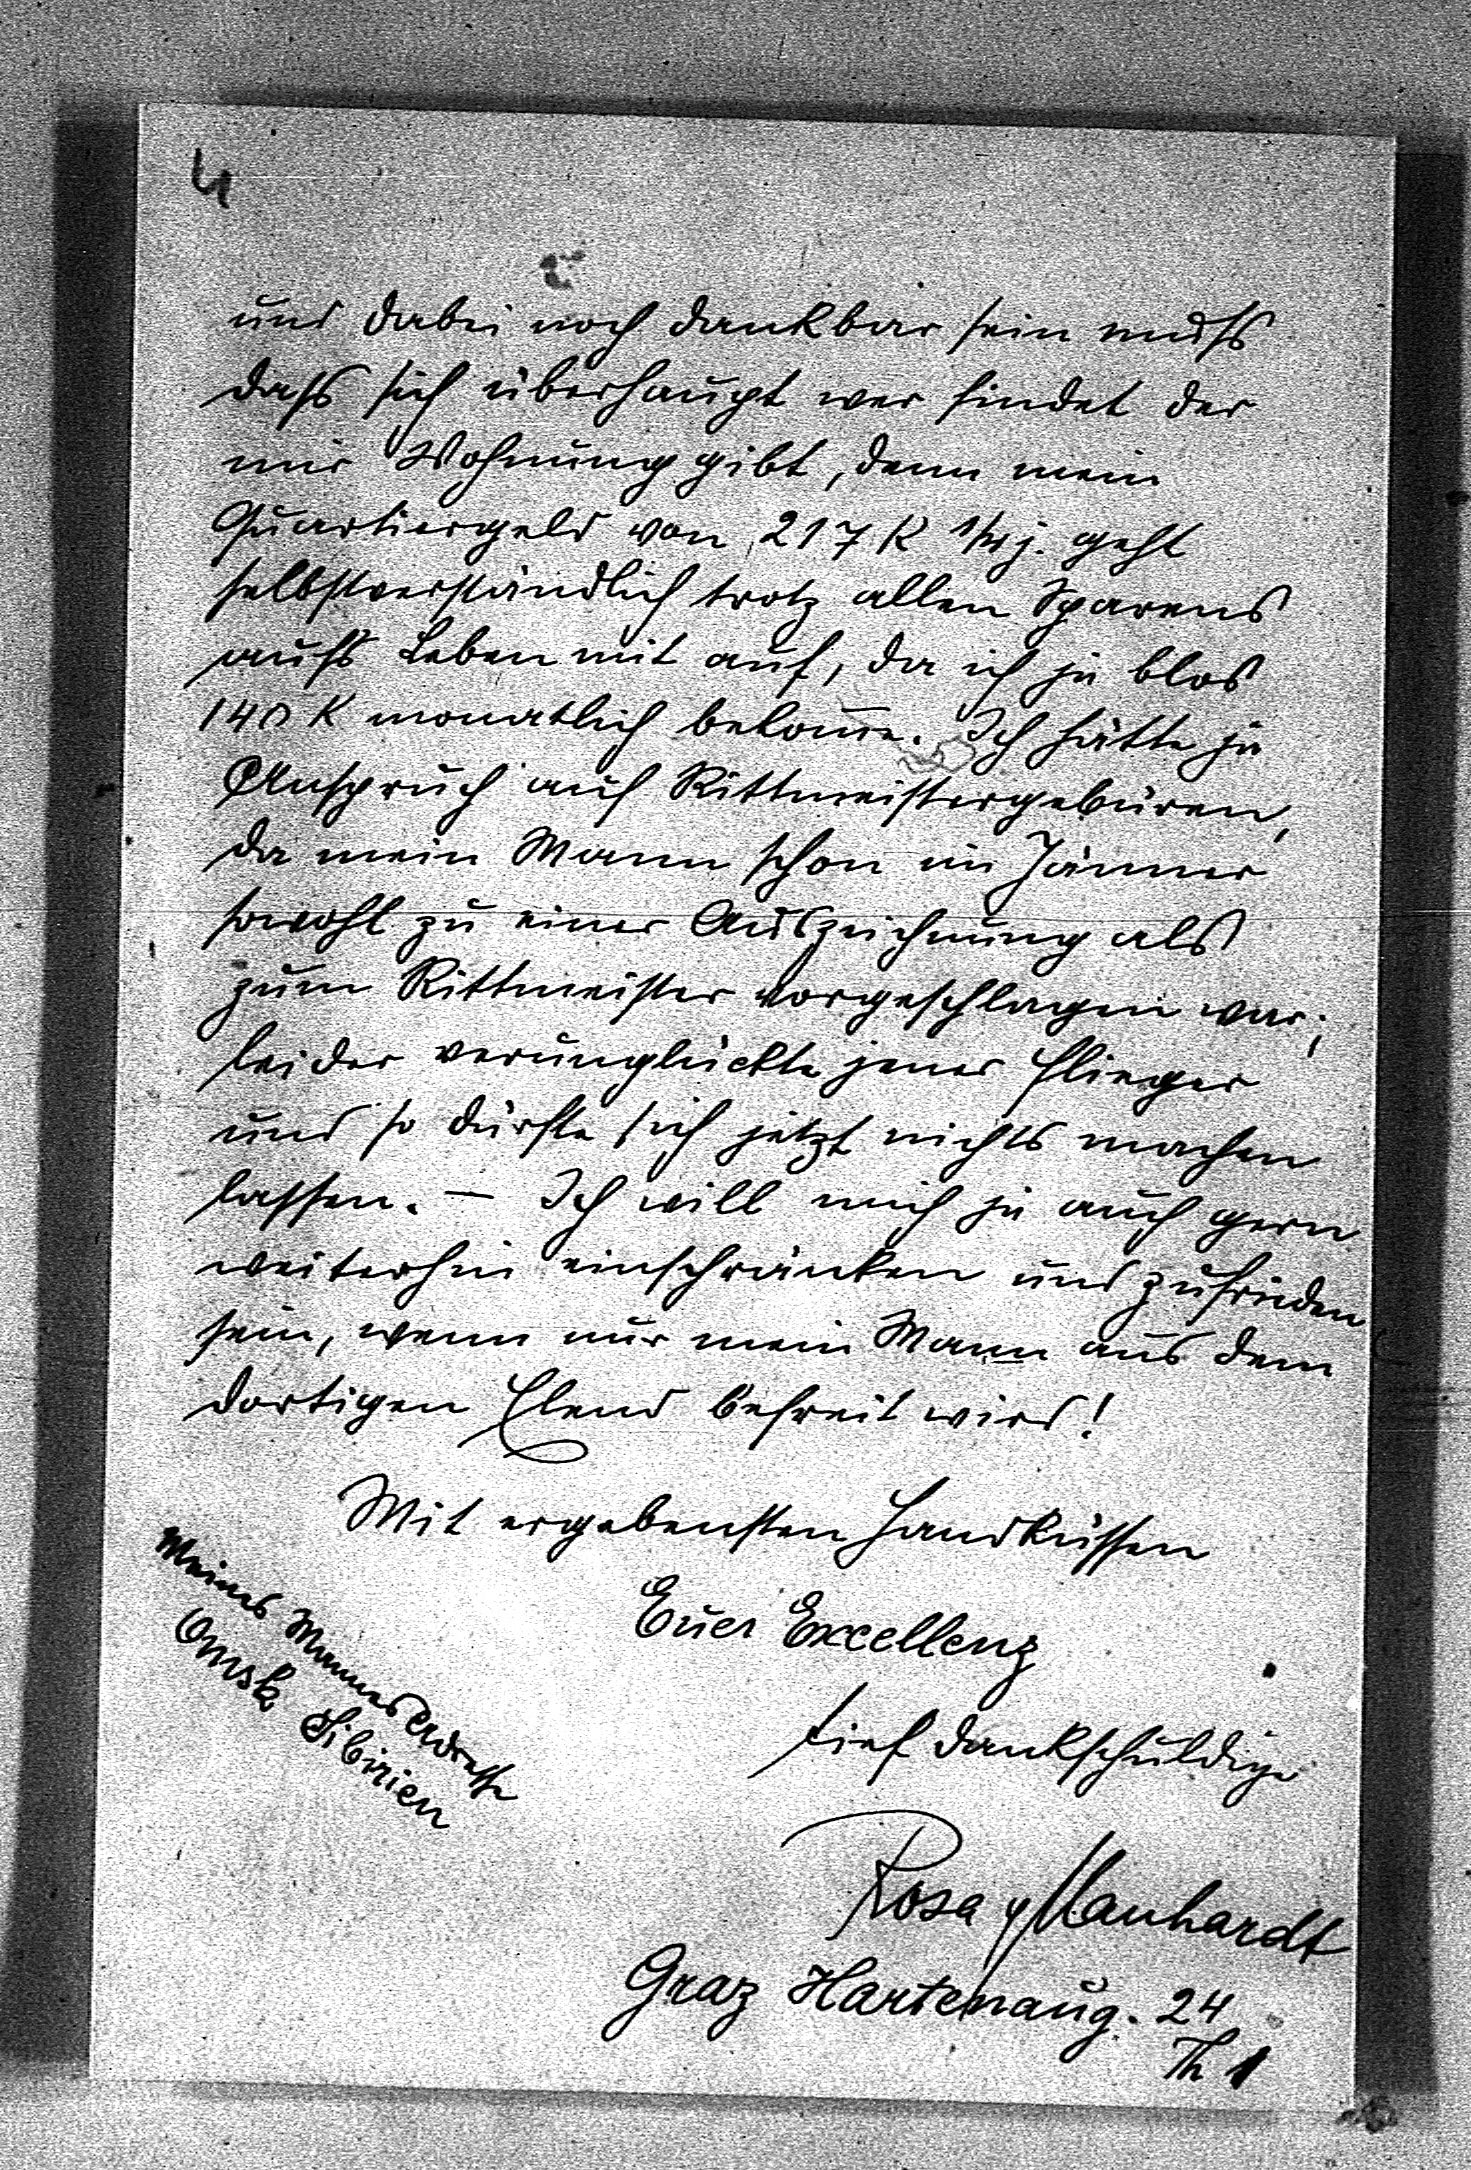 4
und dabei noch dankbar sein muss
dass sich überhaupt wer findet der
mir Wohnung gibt, denn mein
Quartiergeld von 217 K geht
selbstverständlich trotz allen Sparens
aufs Leben mit auf, da ich ja blos
140 K monatlich bekom̅e. Ich hätte ja
Anspruch auf Rittmeistergebüren,
da mein Mann schon im Jänner
sowohl zu einer Auszeichnung als
zum Rittmeister vorgeschlagen war;
leider verunglückte jener Flieger
und so dürfte sich jetzt nichts machen
lassen. – Ich will mich ja auch gern
weiterhin einschränken und zufrieden
sein, wenn nur mein Mann aus dem
dortigen Elend befreit wird!
Mit ergebensten Handküssen
Euer Excellenz
tief dankschuldige
Rosa v Manhardt
Graz Hartenaug. 24
Th 1
Meines Mannes Adresse
Omsk Sibirien